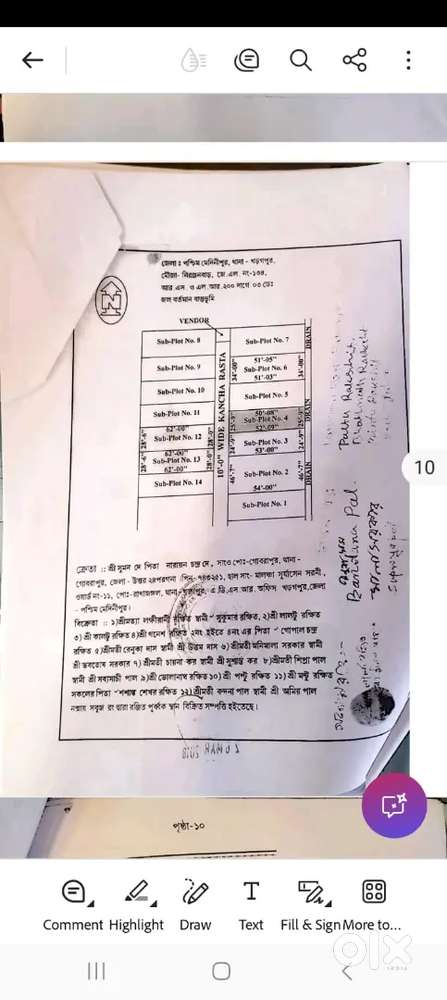 জেলাঃ পশ্চিম মেদিনীপুর, থানা - খড়গপুর,
মৌজা- নিরঞ্জনবাড়, জে.এল. নং-১৩৪,
আর.এস. ও এল.আর.২০০ দাগে ০৩ ডেঃ
জল বর্তমান বাস্তুভূমি
N
VENDOR
Sub-Plot No. 8
Sub-Plot No. 9
Sub-Plot No. 10
Sub-Plot No. 11
62'-00"
Sub-Plot No. 12
62'-00"
Sub-Plot No. 13
62'-00"
Sub-Plot No. 14
28'-6"
28'-6"
28'-0"
28'-0"
10'-0" WIDE KANCHA RASTA
34'-00"
25'-9"
24'-9"
46'-7"
Sub-Plot No. 7
51'-05"
Sub-Plot No. 6
51'-03"
Sub-Plot No. 5
50'-08"
Sub-Plot No. 4
52'-09"
Sub-Plot No. 3
53'-00"
Sub-Plot No. 2
54'-00"
Sub-Plot No. 1
DRAIN
34'-00"
DRAIN
25'-9"
24'-9"
46'-7"
DRAIN
Bandana Pal.
ক্রেতা : শ্রী সুমন দে পিতা নারায়ন চন্দ্র দে, সাং+পোঃ-গোবরাপুর, থানা-
গোবরাপুর, জেলা- উত্তর ২৪পরগনা পিন- ৭৪৩২৫১, হাল সাং- মালঞ্চা সূর্য্যসেন সরনী,
ওয়ার্ড নং-১১, পোঃ-রাখাজঙ্গল, থানা খড়গপুর, এ.ডি.এস.আর. অফিস খড়গপুর,জেলা
- পশ্চিম মেদিনীপুর।
বিক্রেতা : ১)শ্রীমত্যা লক্ষ্মীরানী রক্ষিত স্বামী সুকুমার রক্ষিত, ২)শ্রী লালটু রক্ষিত
৩) শ্রী কালটু রক্ষিত ৪)শ্রী গনেশ রক্ষিত ২নং হইতে ৪নং এর পিতা গোপাল চন্দ্র
রক্ষিত ৫)শ্রীমতী রেনুকা দাস স্বামী শ্রী উত্তম দাস ৬)শ্রীমতী অনিমালা সরকার স্বামী
শ্রী ভবতোষ সরকার ৭) শ্রীমতী চায়না কর স্বামী শ্রী সুশান্ত কর ৮)শ্রীমতী শিপ্রা পাল
স্বামী শ্রী সব্যসাচী পাল ৯)শ্রী ভোলানাথ রক্ষিত ১০) শ্রী পল্টু রক্ষিত ১১) শ্রী মন্টু রক্ষিত
সকলের পিতা শশাঙ্ক শেখর রক্ষিত ১২)শ্রীমতী বন্দনা পাল স্বামী শ্রী অমিয় পাল
নক্সায় সবুজ রং দ্বারা রঞ্জিত পূর্ব্বক স্থান বিক্রিত সম্পত্তি হইতেছে।
10
পৃষ্ঠা-১০
Comment
Highlight
Draw
Text
Fill & Sign
More to...
olx
INDIA